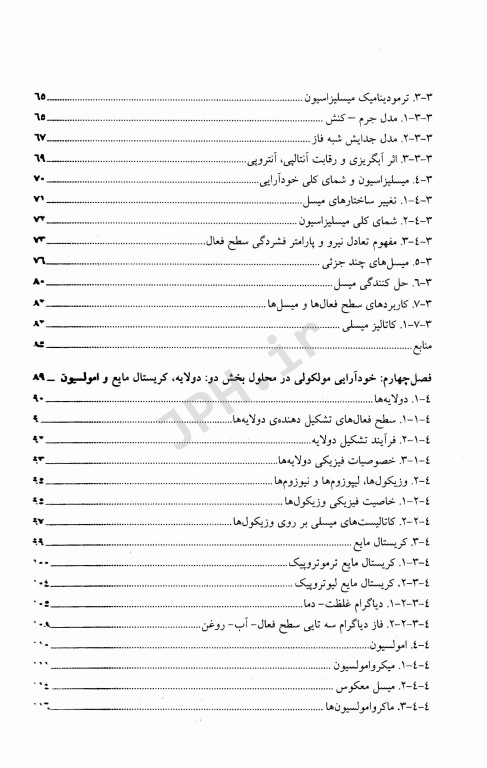 ۳-۳. ترمودینامیک میسلیزاسیون ۶۵
۳-۳-۱. مدل جرم – کنش ۶۵
۳-۳-۲. مدل جدایش شبه فاز ۶۷
۳-۳-۳. اثر آبگریزی و رقابت آنتالپی، آنتروپی ۶۹
۳-۴. میسلیزاسیون و شمای کلی خودآرایی ۷۰
۳-۴-۱. تغییر ساختارهای میسل ۷۱
۳-۴-۲. شمای کلی میسلیزاسیون ۷۲
۳-۴-۳. مفهوم تعادل نیرو و پارامتر فشردگی سطح فعال ۷۳
۳-۵. میسل‌های چند جزئی ۷۶
۳-۶. حل کنندگی میسل ۸۰
۳-۷. کاربردهای سطح فعال‌ها و میسل‌ها ۸۲
۳-۷-۱. کاتالیز میسلی ۸۳
منابع ۸۵
فصل چهارم: خودآرایی مولکولی در محلول بخش دو: دولایه، کریستال مایع و امولسیون ۸۹
۴-۱. دولایه‌ها ۹۰
۴-۱-۱. سطح فعال‌های تشکیل دهنده‌ی دولایه‌ها
۴-۱-۲. فرآیند تشکیل دولایه ۹۲
۴-۱-۳. خصوصیات فیزیکی دولایه‌ها ۹۳
۴-۲. وزیکول‌ها، لیپوزوم‌ها و نیوزوم‌ها ۹۵
۴-۲-۱. خاصیت فیزیکی وزیکول‌ها ۹۵
۴-۲-۲. کاتالیست‌های میسلی بر روی وزیکول‌ها ۹۷
۴-۳. کریستال مایع ۹۹
۴-۳-۱. کریستال مایع ترموتروپیک ۱۰۰
۴-۳-۲. کریستال مایع لیوتروپیک ۱۰۴
۴-۳-۲-۱. دیاگرام غلظت- دما ۱۰۵
۴-۳-۲-۲. فاز دیاگرام سه تایی سطح فعال- آب- روغن ۱۰۸
۴-۴. امولسیون ۱۱۰
۴-۴-۱. میکروامولسیون ۱۱۱
۴-۴-۲. میسل معکوس
۴-۴-۳. ماکروامولسیون‌ها
JPH.ir